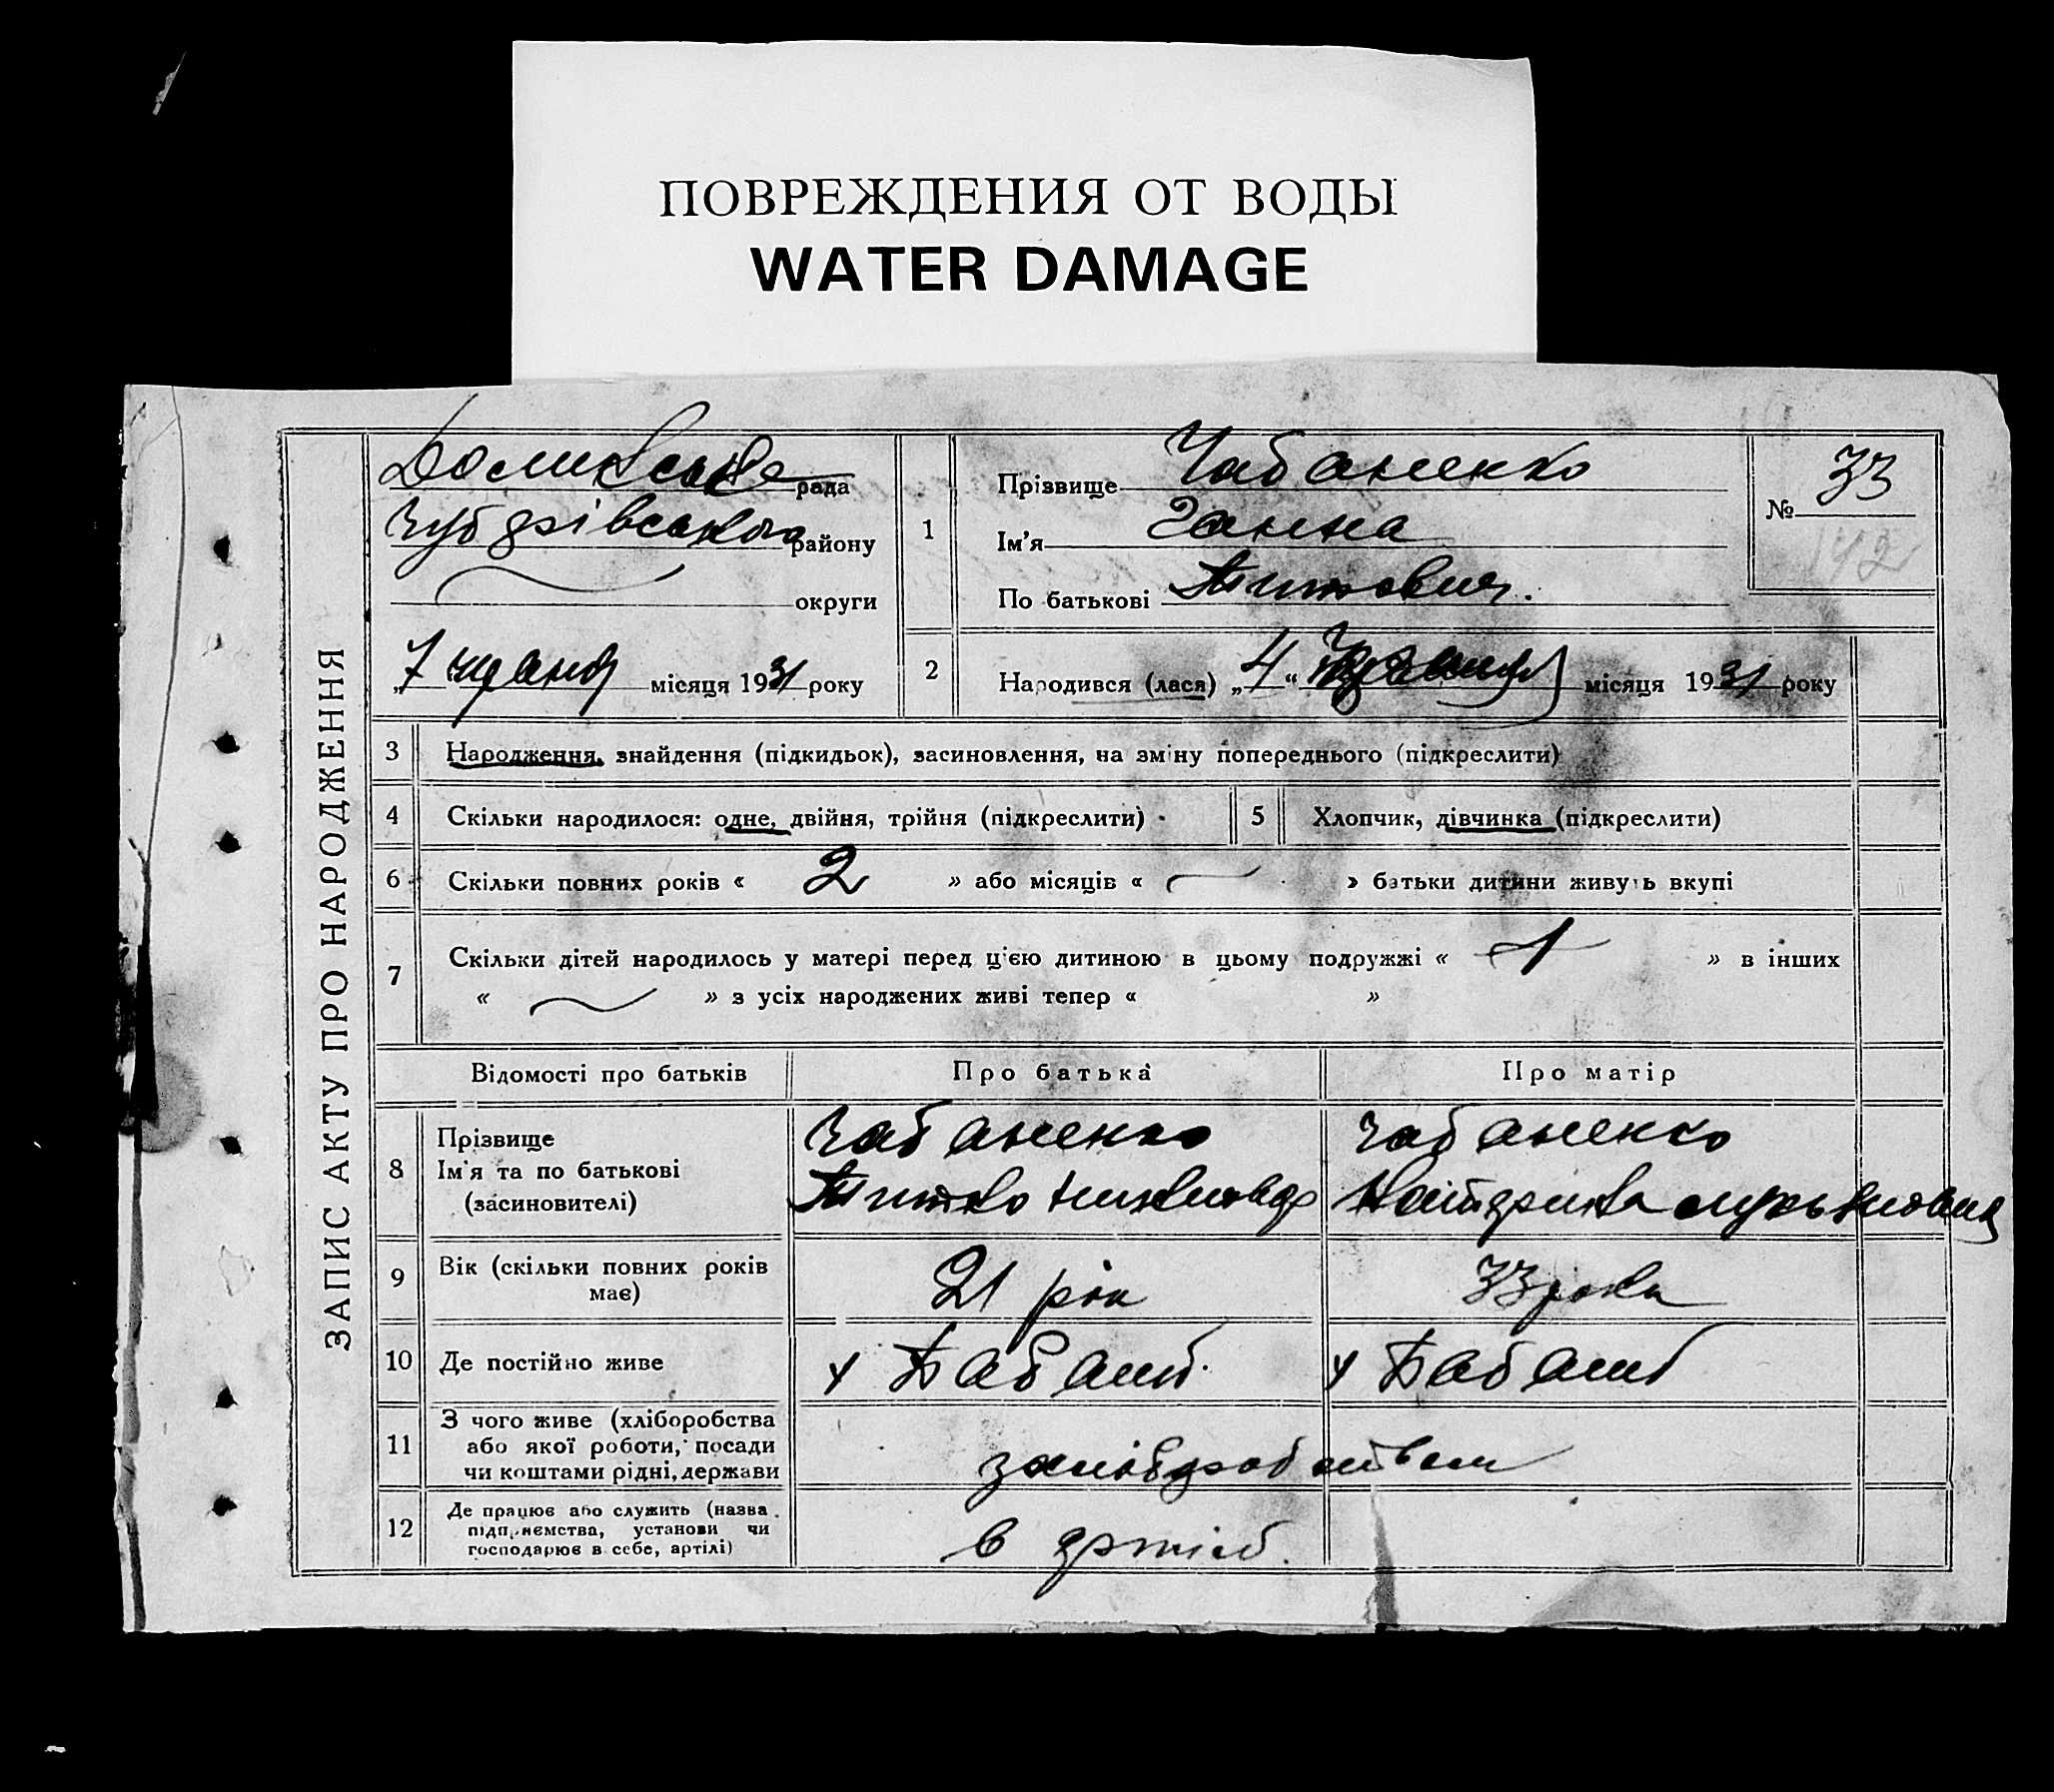 ПОВРЕЖДЕНИЯ ОТ ВОДЫ
WATER DAMAGE
ЗАПИС АКТУ ПРО НАРОДЖЕННЯ
рада
району
округи
„7 місяця 1931 року
1
Прізвище Чабаненко
Ім'я Ганна
По батькові Титович.
№ 33
142
2
Народився (лася) „4“ місяця 1931 року
3 Народження, знайдення (підкидьок), засиновлення, на зміну попереднього (підкреслити)
4 Скільки народилося: одне, двійня, трійня (підкреслити)
5 Хлопчик, дівчинка (підкреслити)
6 Скільки повних років « 2 » або місяців « » батьки дитини живуть вкупі
7 Скільки дітей народилось у матері перед цією дитиною в цьому подружжі « 1 » в інших
« » з усіх народжених живі тепер « »
Відомості про батьків Про батька Про матір
8 Прізвище
Ім'я та по батькові
(засиновителі)
Чабаненко
Чабаненко
9 Вік (скільки повних років
має)
21 рік
33 роки
10 Де постійно живе
х Бабани
х Бабани
11 З чого живе (хліборобства
або якої роботи, посади
чи коштами рідні, держави
12 Де працює або служить (назва
підприємства, установи чи
господарює в себе, артілі)
в